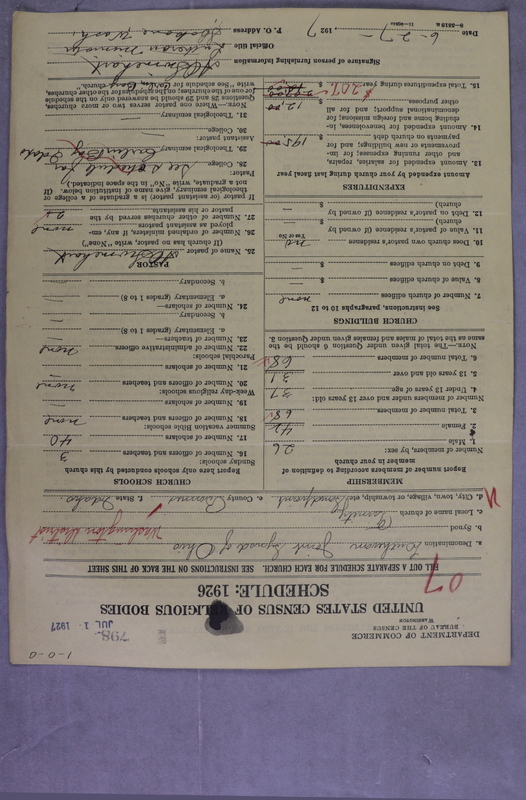 1-0-0
DEPARTMENT OF COMMERCE
BUREAU OF THE CENSUS
WASHINGTON
798
JUL 1 1927
UNITED STATES CENSUS OF RELIGIOUS BODIES
SCHEDULE: 1926
07
FILL OUT A SEPARATE SCHEDULE FOR EACH CHURCH. SEE INSTRUCTIONS ON THE BACK OF THIS SHEET
a. Denomination Lutheran Joint Synod of Ohio
b. Synod
Washington District
c. Local name of church Trinity
d. City, town, village, or township, etc. Sandpoint e. County Bonner f. State Idaho
MEMBERSHIP
Report number of members according to definition of member in your church
Number of members, by sex:
1. Male 26
2. Female 42
3. Total number of members 68
Number of members under and over 13 years old:
4. Under 13 years of age 37
5. 13 years old and over 31
6. Total number of members 68
NOTE.—The total given under Question 6 should be the same as the total of males and females given under Question 3.
CHURCH BUILDINGS
See instructions, paragraphs 10 to 12
7. Number of church edifices none
8. Value of church edifices $
9. Debt on church edifices $
10. Does own church pastor's residence no
Yes or No
11. Value of pastor's residence (if owned by church) $
12. Debt on pastor's residence (if owned by church) $
EXPENDITURES
Amount expended by your church during last fiscal year
13. Amount expended for salaries, repairs, and other running expenses; for improvements or new building; and for payments on church debt $
14. Amount expended for benevolences, including home and foreign missions; for denominational support; and for all other purposes $ 12.00
15. Total expenditures during year $ 207
CHURCH SCHOOLS
Report here only schools conducted by this church
Sunday schools:
16. Number of officers and teachers 3
17. Number of scholars 40
Summer vacation Bible schools:
18. Number of officers and teachers none
19. Number of scholars
Week-day religious schools:
20. Number of officers and teachers none
21. Number of scholars
Parochial schools:
22. Number of administrative officers none
23. Number of teachers—
a. Elementary (grades 1 to 8)
b. Secondary
24. Number of scholars—
a. Elementary (grades 1 to 8)
b. Secondary
PASTOR
25. Name of pastor
(If church has no pastor, write "None")
26. Number of ordained ministers, if any, employed as assistants to pastor none
27. Number of other churches served by the pastor or his assistants 2
If pastor (or assistant pastor) is a graduate of a college or theological seminary, give name of institution below. (If not a graduate, write "No" in the space indicated.)
Pastor:
28. College See schedule for
29. Theological seminary
Assistant pastor:
30. College
31. Theological seminary
Signature of person furnishing information
Official title
P. O. Address Spokane Wash
Date 6-27-, 1927
11—9594 8—5519 a